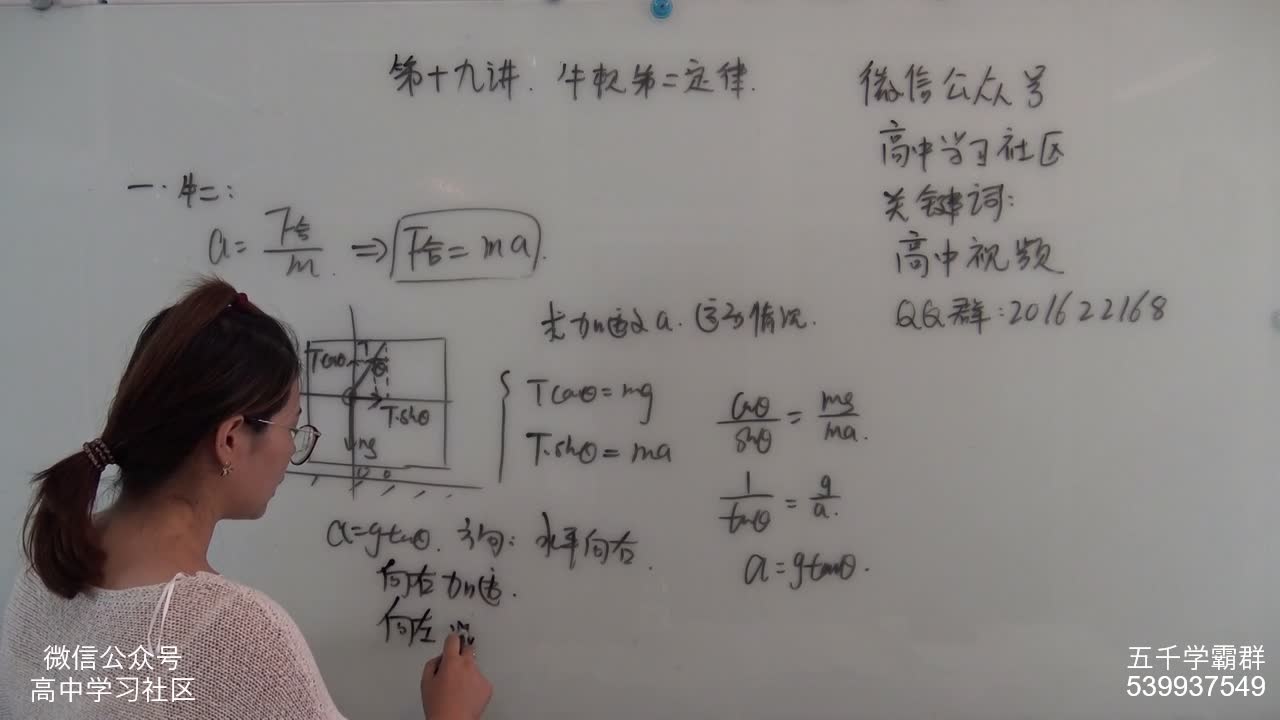 第十九讲. 牛顿第二定律.
微信公众号
高中学习社区
关键词:
高中视频
QQ群:201622168
一.牛二:
a=F合/m ⇒ F合=ma.
求加速度a.运动情况.
Tcosθ
θ
T·sinθ
mg
Tcosθ=mg
T·sinθ=ma
cosθ/sinθ=mg/ma.
1/tanθ=g/a.
a=gtanθ.
a=gtanθ. 方向:水平向右.
向右加速.
向左
微信公众号
高中学习社区
五千学霸群
539937549